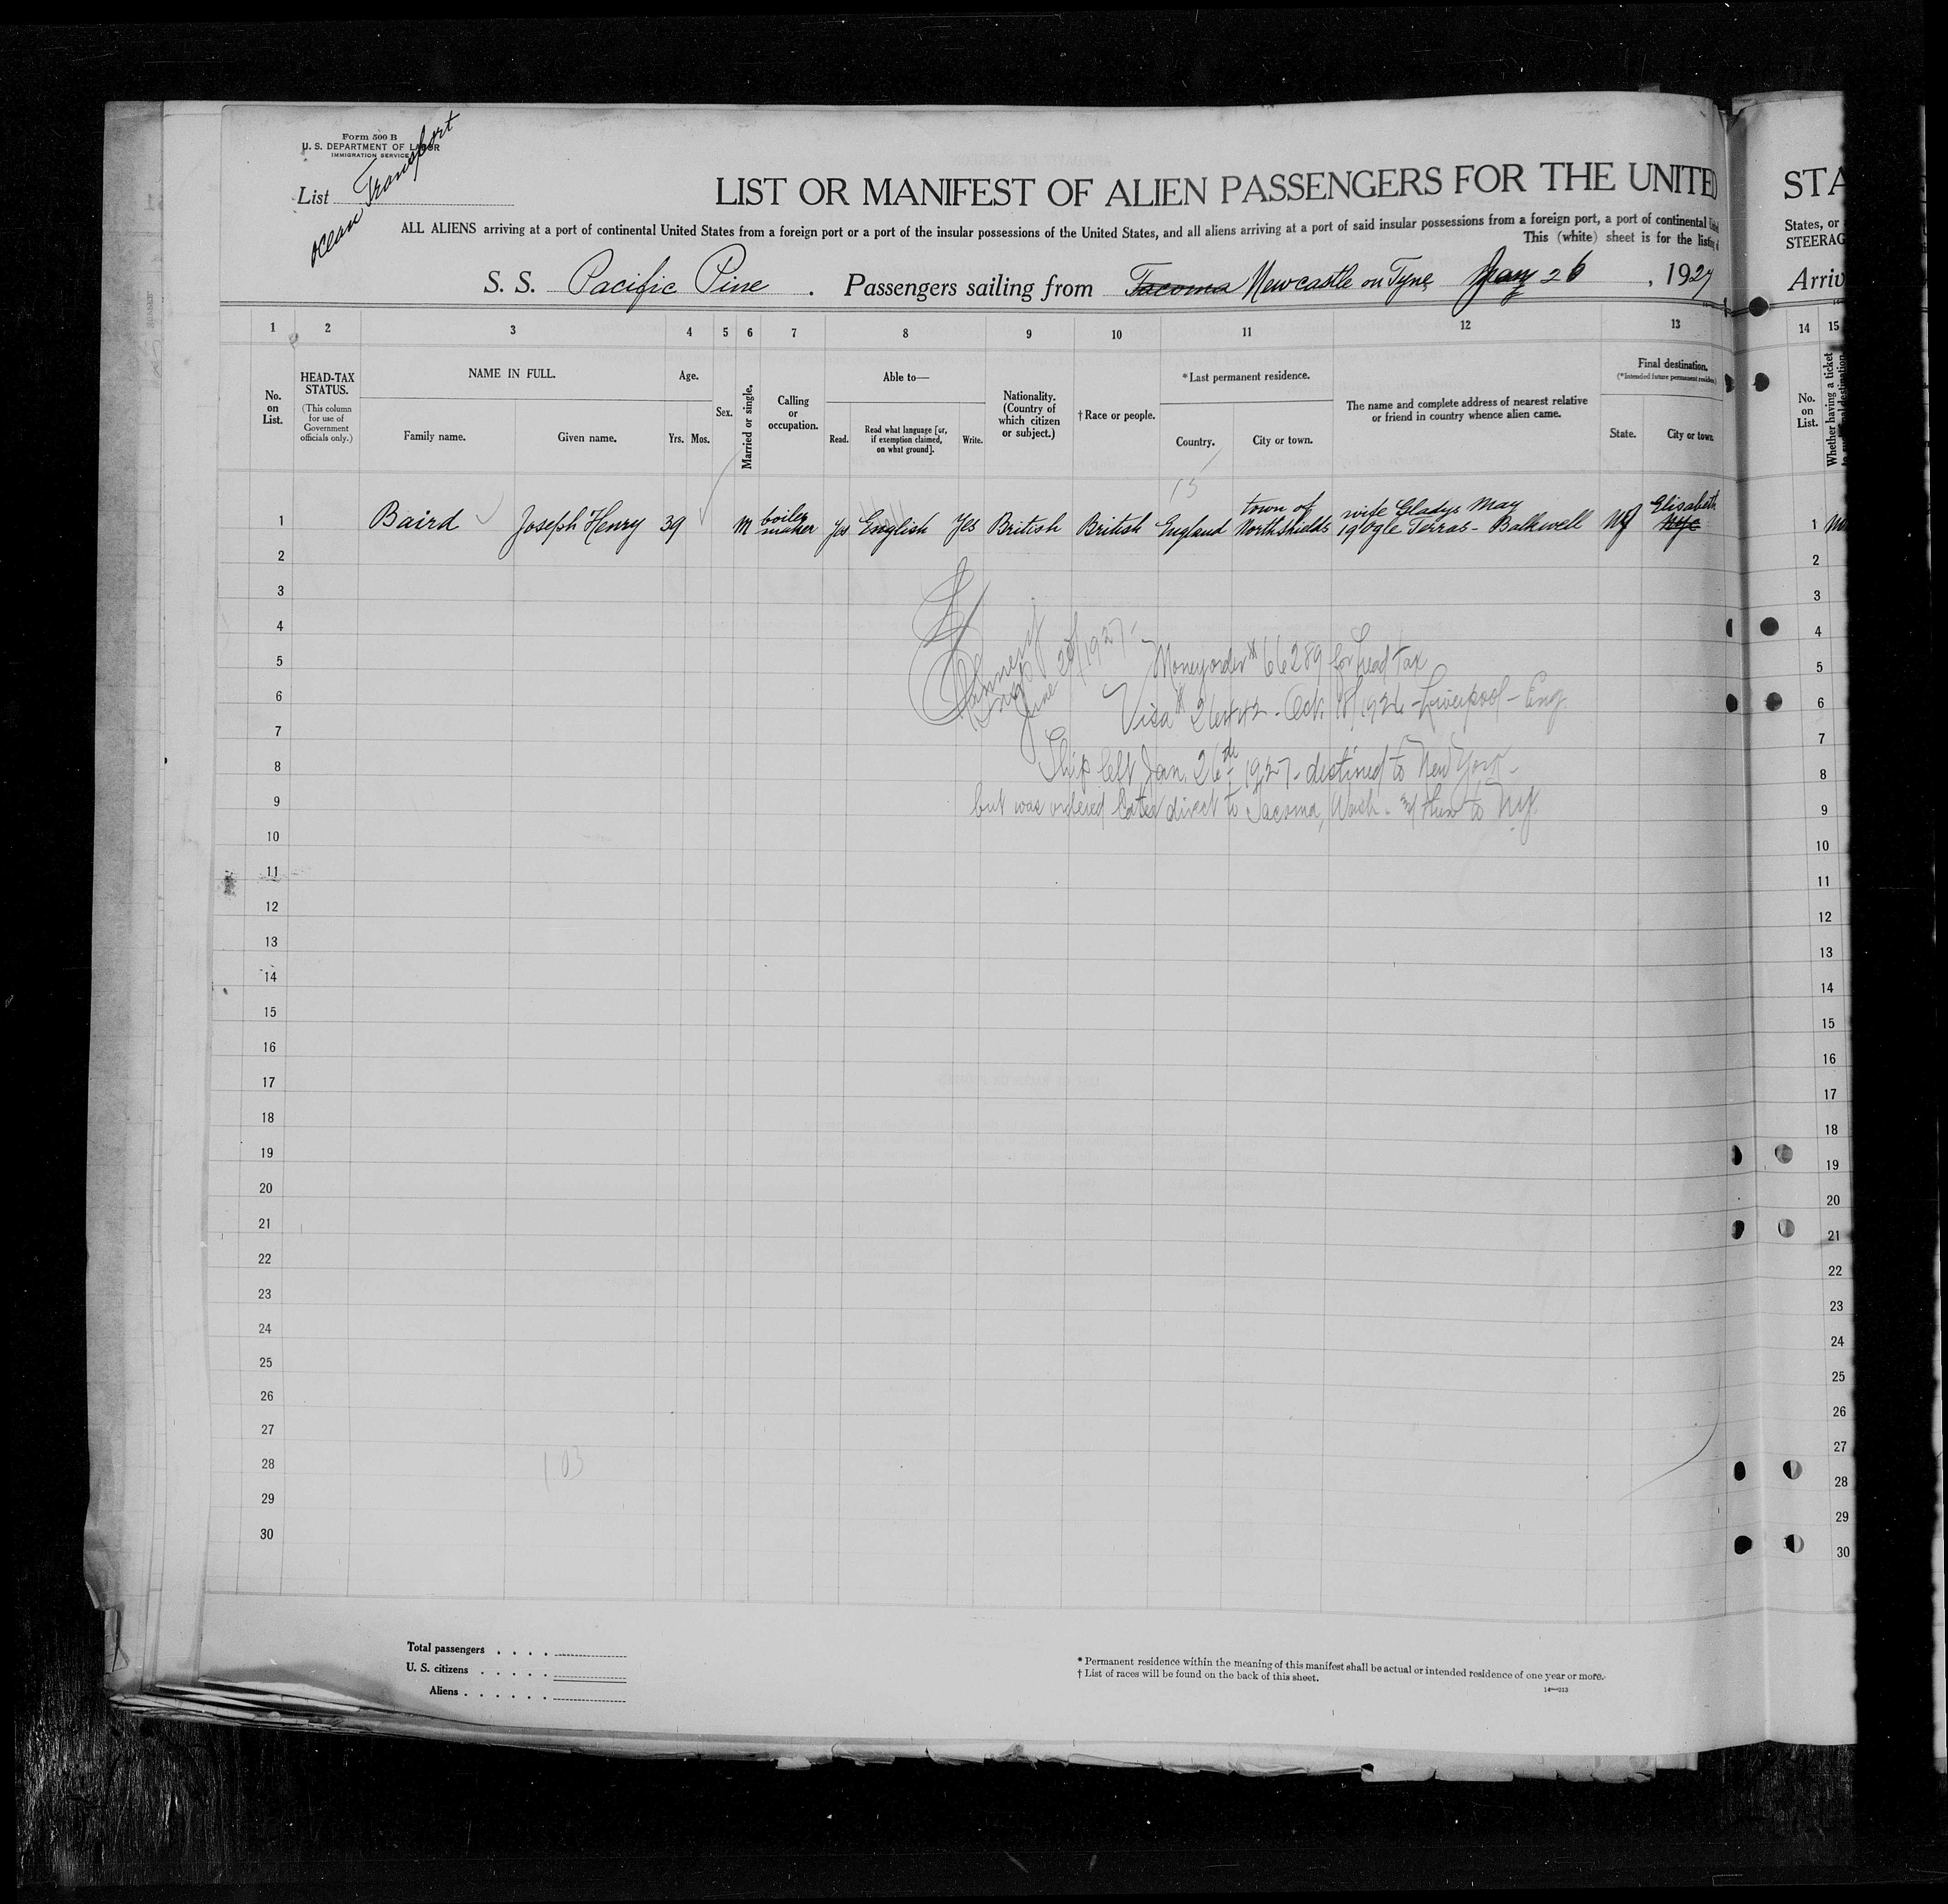 Form 500 B
U. S. DEPARTMENT OF LABOR
IMMIGRATION SERVICE
List
Ocean Transport
LIST OR MANIFEST OF ALIEN PASSENGERS FOR THE UNITED
ALL ALIENS arriving at a port of continental United States from a foreign port or a port of the insular possessions of the United States, and all aliens arriving at a port of said insular possessions from a foreign port, a port of continental
This (white) sheet is for the listing
S. S. Pacific Pine . Passengers sailing from Tacoma Newcastle on Tyne Jany 26 , 1927
1 2 3 4 5 6 7 8 9 10 11 12 13
No. on List.
HEAD-TAX STATUS.
(This column for use of Government officials only.)
NAME IN FULL.
Family name. Given name.
Age.
Yrs. Mos.
Sex.
Married or single.
Calling or occupation.
Able to—
Read. Read what language [or, if exemption claimed, on what ground]. Write.
Nationality. (Country of which citizen or subject.)
†Race or people.
*Last permanent residence.
Country. City or town.
The name and complete address of nearest relative or friend in country whence alien came.
Final destination.
(*Intended future permanent residence)
State. City or town
13
1 Baird Joseph Henry 39 M boiler maker Yes English Yes British British England town of North Shields wife Gladys May 19 Ogle Terras - Balkwell NJ Elisabeth
2
3
4
5
6
7
8
9
10
11
12
13
14
15
16
17
18
19
20
21
22
23
24
25
26
27
28
29
30
June 29/1927-
Moneyorder # 66289 for head tax
Visa # - Oct. 18/1926 - Liverpool - Eng.
Ship left Jan. 26th 1927 - destined to New York -
but was ordered later direct to Tacoma, Wash. - then to NY.
103
Total passengers . . . .
U. S. citizens . . . . .
Aliens . . . . . .
* Permanent residence within the meaning of this manifest shall be actual or intended residence of one year or more.
† List of races will be found on the back of this sheet.
14—213
STA
States, or
STEERAG
Arriv
14 15
No. on List.
Whether having a ticket
1
2
3
4
5
6
7
8
9
10
11
12
13
14
15
16
17
18
19
20
21
22
23
24
25
26
27
28
29
30